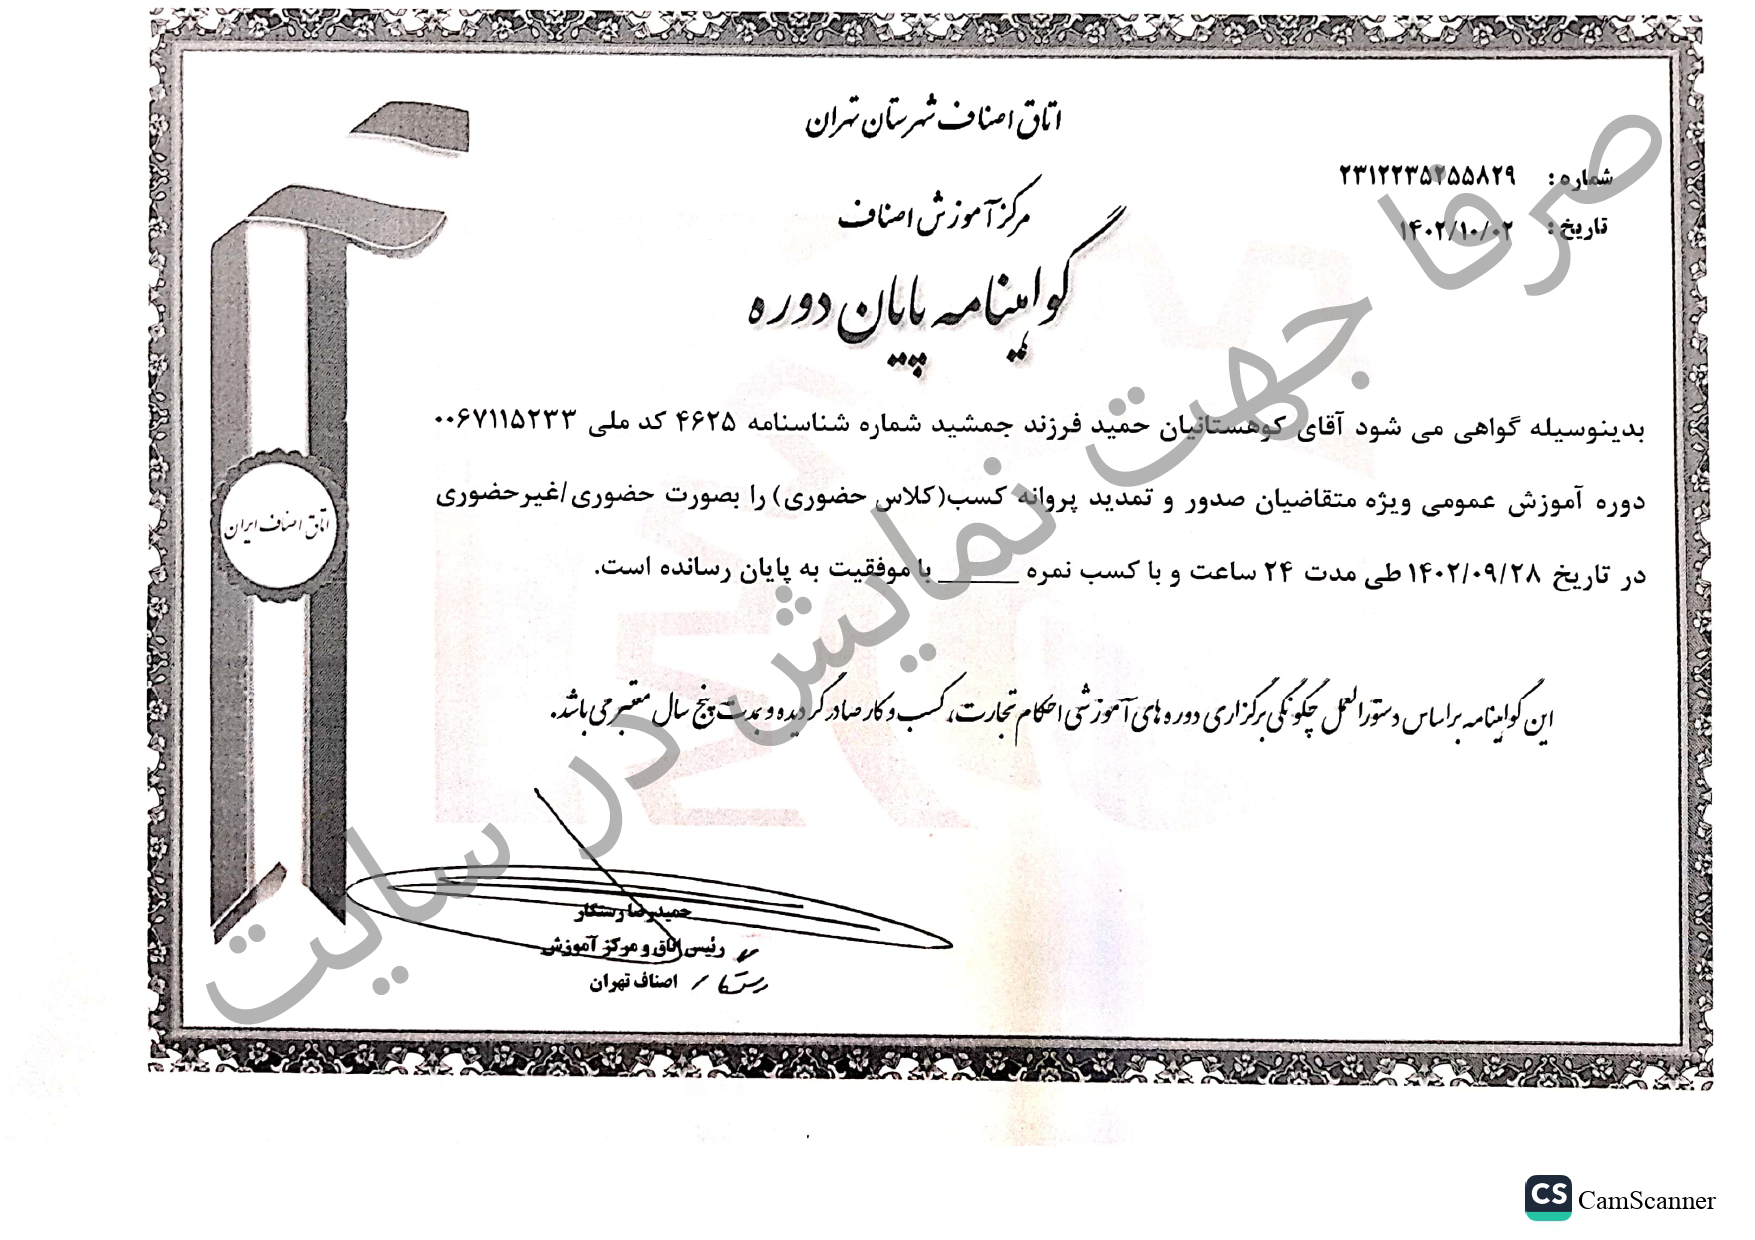 اتاق اصناف شهرستان تهران
شماره: ۲۳۱۲۲۳۵۲۵۵۸۲۹
مرکز آموزش اصناف
تاریخ: ۱۴۰۲/۱۰/۰۲
گواهینامه پایان دوره
بدینوسیله گواهی می شود آقای کوهستانیان حمید فرزند جمشید شماره شناسنامه ۴۶۲۵ کد ملی ۰۰۶۷۱۱۵۲۳۳
دوره آموزش عمومی ویژه متقاضیان صدور و تمدید پروانه کسب(کلاس حضوری) را بصورت حضوری/غیرحضوری
اتاق اصناف ایران
در تاریخ ۱۴۰۲/۰۹/۲۸ طی مدت ۲۴ ساعت و با کسب نمره ______ با موفقیت به پایان رسانده است.
این گواهینامه براساس دستورالعمل چگونگی برگزاری دوره های آموزشی احکام تجارت، کسب و کار صادر گردیده و بمدت پنج سال معتبر می باشد.
حمیدرضا رستگار
رئیس اتاق و مرکز آموزش
اصناف تهران
صرفا جهت نمایش در سایت
CS CamScanner